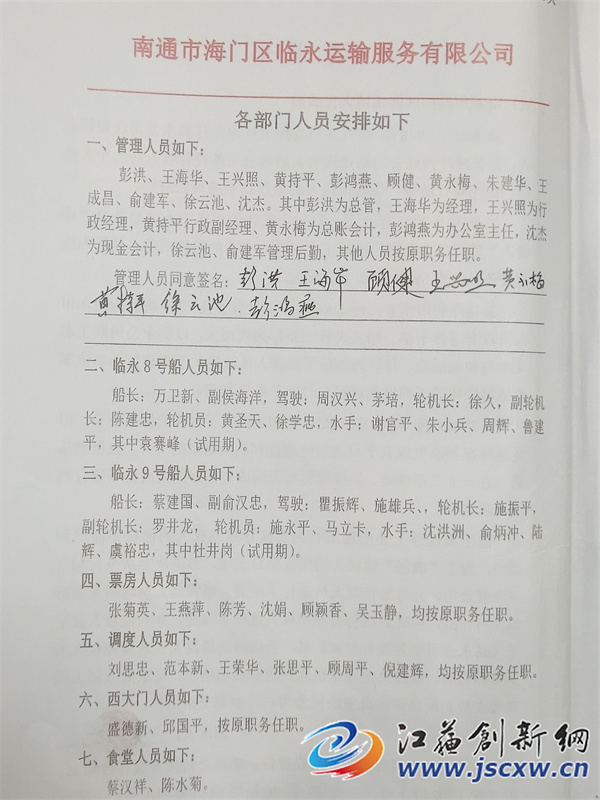 南通市海门区临永运输服务有限公司
各部门人员安排如下
一、管理人员如下：
彭洪、王海华、王兴照、黄持平、彭鸿燕、顾健、黄永梅、朱建华、王
成昌、俞建军、徐云池、沈杰。其中彭洪为总管，王海华为经理，王兴照为行
政经理，黄持平行政副经理、黄永梅为总账会计，彭鸿燕为办公室主任，沈杰
为现金会计，徐云池、俞建军管理后勤，其他人员按原职务任职。
管理人员同意签名：彭洪 王海华 顾健 王兴照 黄永梅
黄持平 徐云池 彭鸿燕
二、临永8号船人员如下：
船长：万卫新、副侯海洋，驾驶：周汉兴、茅培，轮机长：徐久，副轮机
长：陈建忠，轮机员：黄圣天、徐学忠，水手：谢官平、朱小兵、周辉、鲁建
平，其中袁赛峰（试用期）。
三、临永9号船人员如下：
船长：蔡建国、副俞汉忠，驾驶：瞿振辉、施雄兵、，轮机长：施振平，
副轮机长：罗井龙， 轮机员：施永平、马立卡，水手：沈洪洲、俞炳冲、陆
辉、虞裕忠，其中杜井岗（试用期）。
四、票房人员如下：
张菊英、王燕萍、陈芳、沈娟、顾颖香、吴玉静，均按原职务任职。
五、调度人员如下：
刘思忠、范本新、王荣华、张思平、顾周平、倪建辉，均按原职务任职。
六、西大门人员如下：
盛德新、邱国平，按原职务任职。
七、食堂人员如下：
蔡汉祥、陈水菊。
江苏创新网
www.jscxw.cn